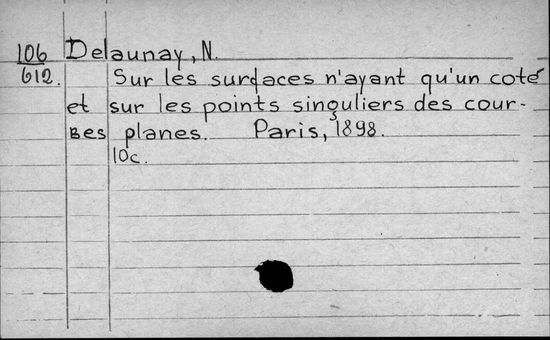 106 Delaunay, N.
612. Sur les surfaces n'ayant qu'un coté
et sur les points singuliers des cour-
bes planes. Paris, 1898.
10c.